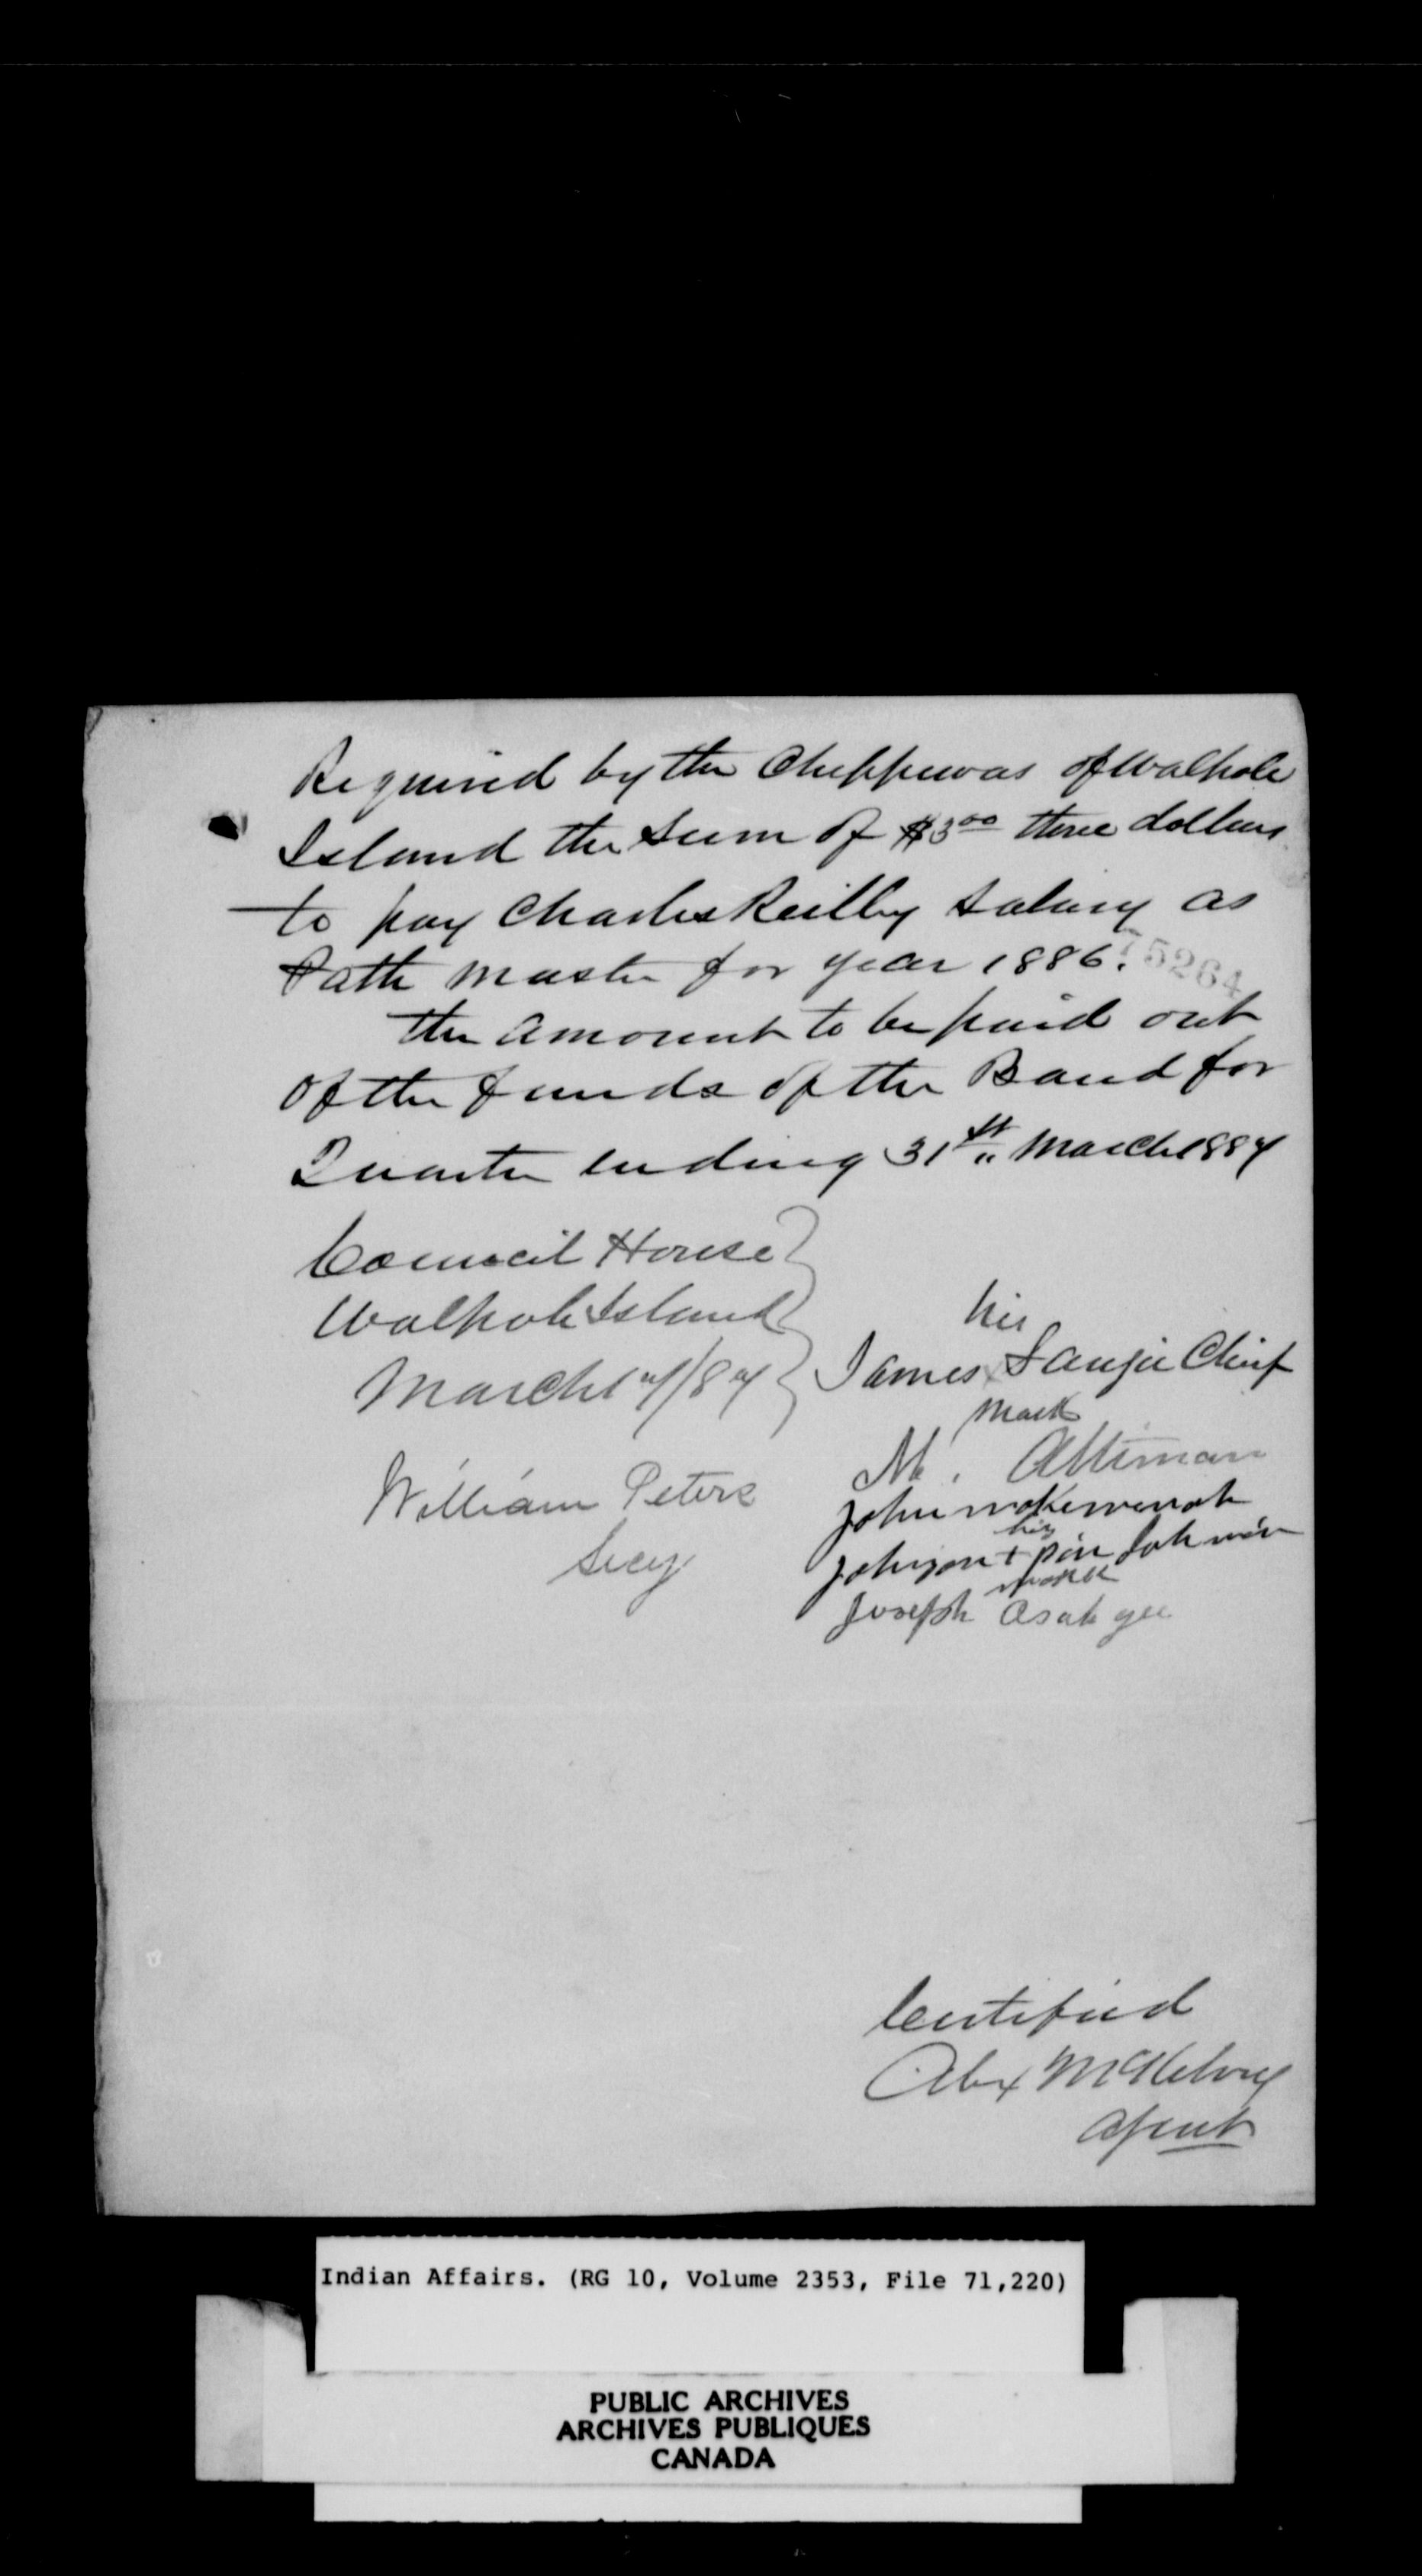 Required by the Chippewas of Walpole
Island the Sum of $3.00 three dollars
to pay Charles Reilly Salary as
Path Master for year 1886.
75264
the amount to be paid out
of the funds of the Band for
Quarter ending 31st March 1887
Council House
Walpole Island
March 17/87
his
James x Sangie Chief
mark
M. Altiman
William Peters
Secy
his
Johnson + Johnson
mark
Joseph Asahgee
Certified
Alex McKelvey
Agent
Indian Affairs. (RG 10, Volume 2353, File 71,220)
PUBLIC ARCHIVES
ARCHIVES PUBLIQUES
CANADA